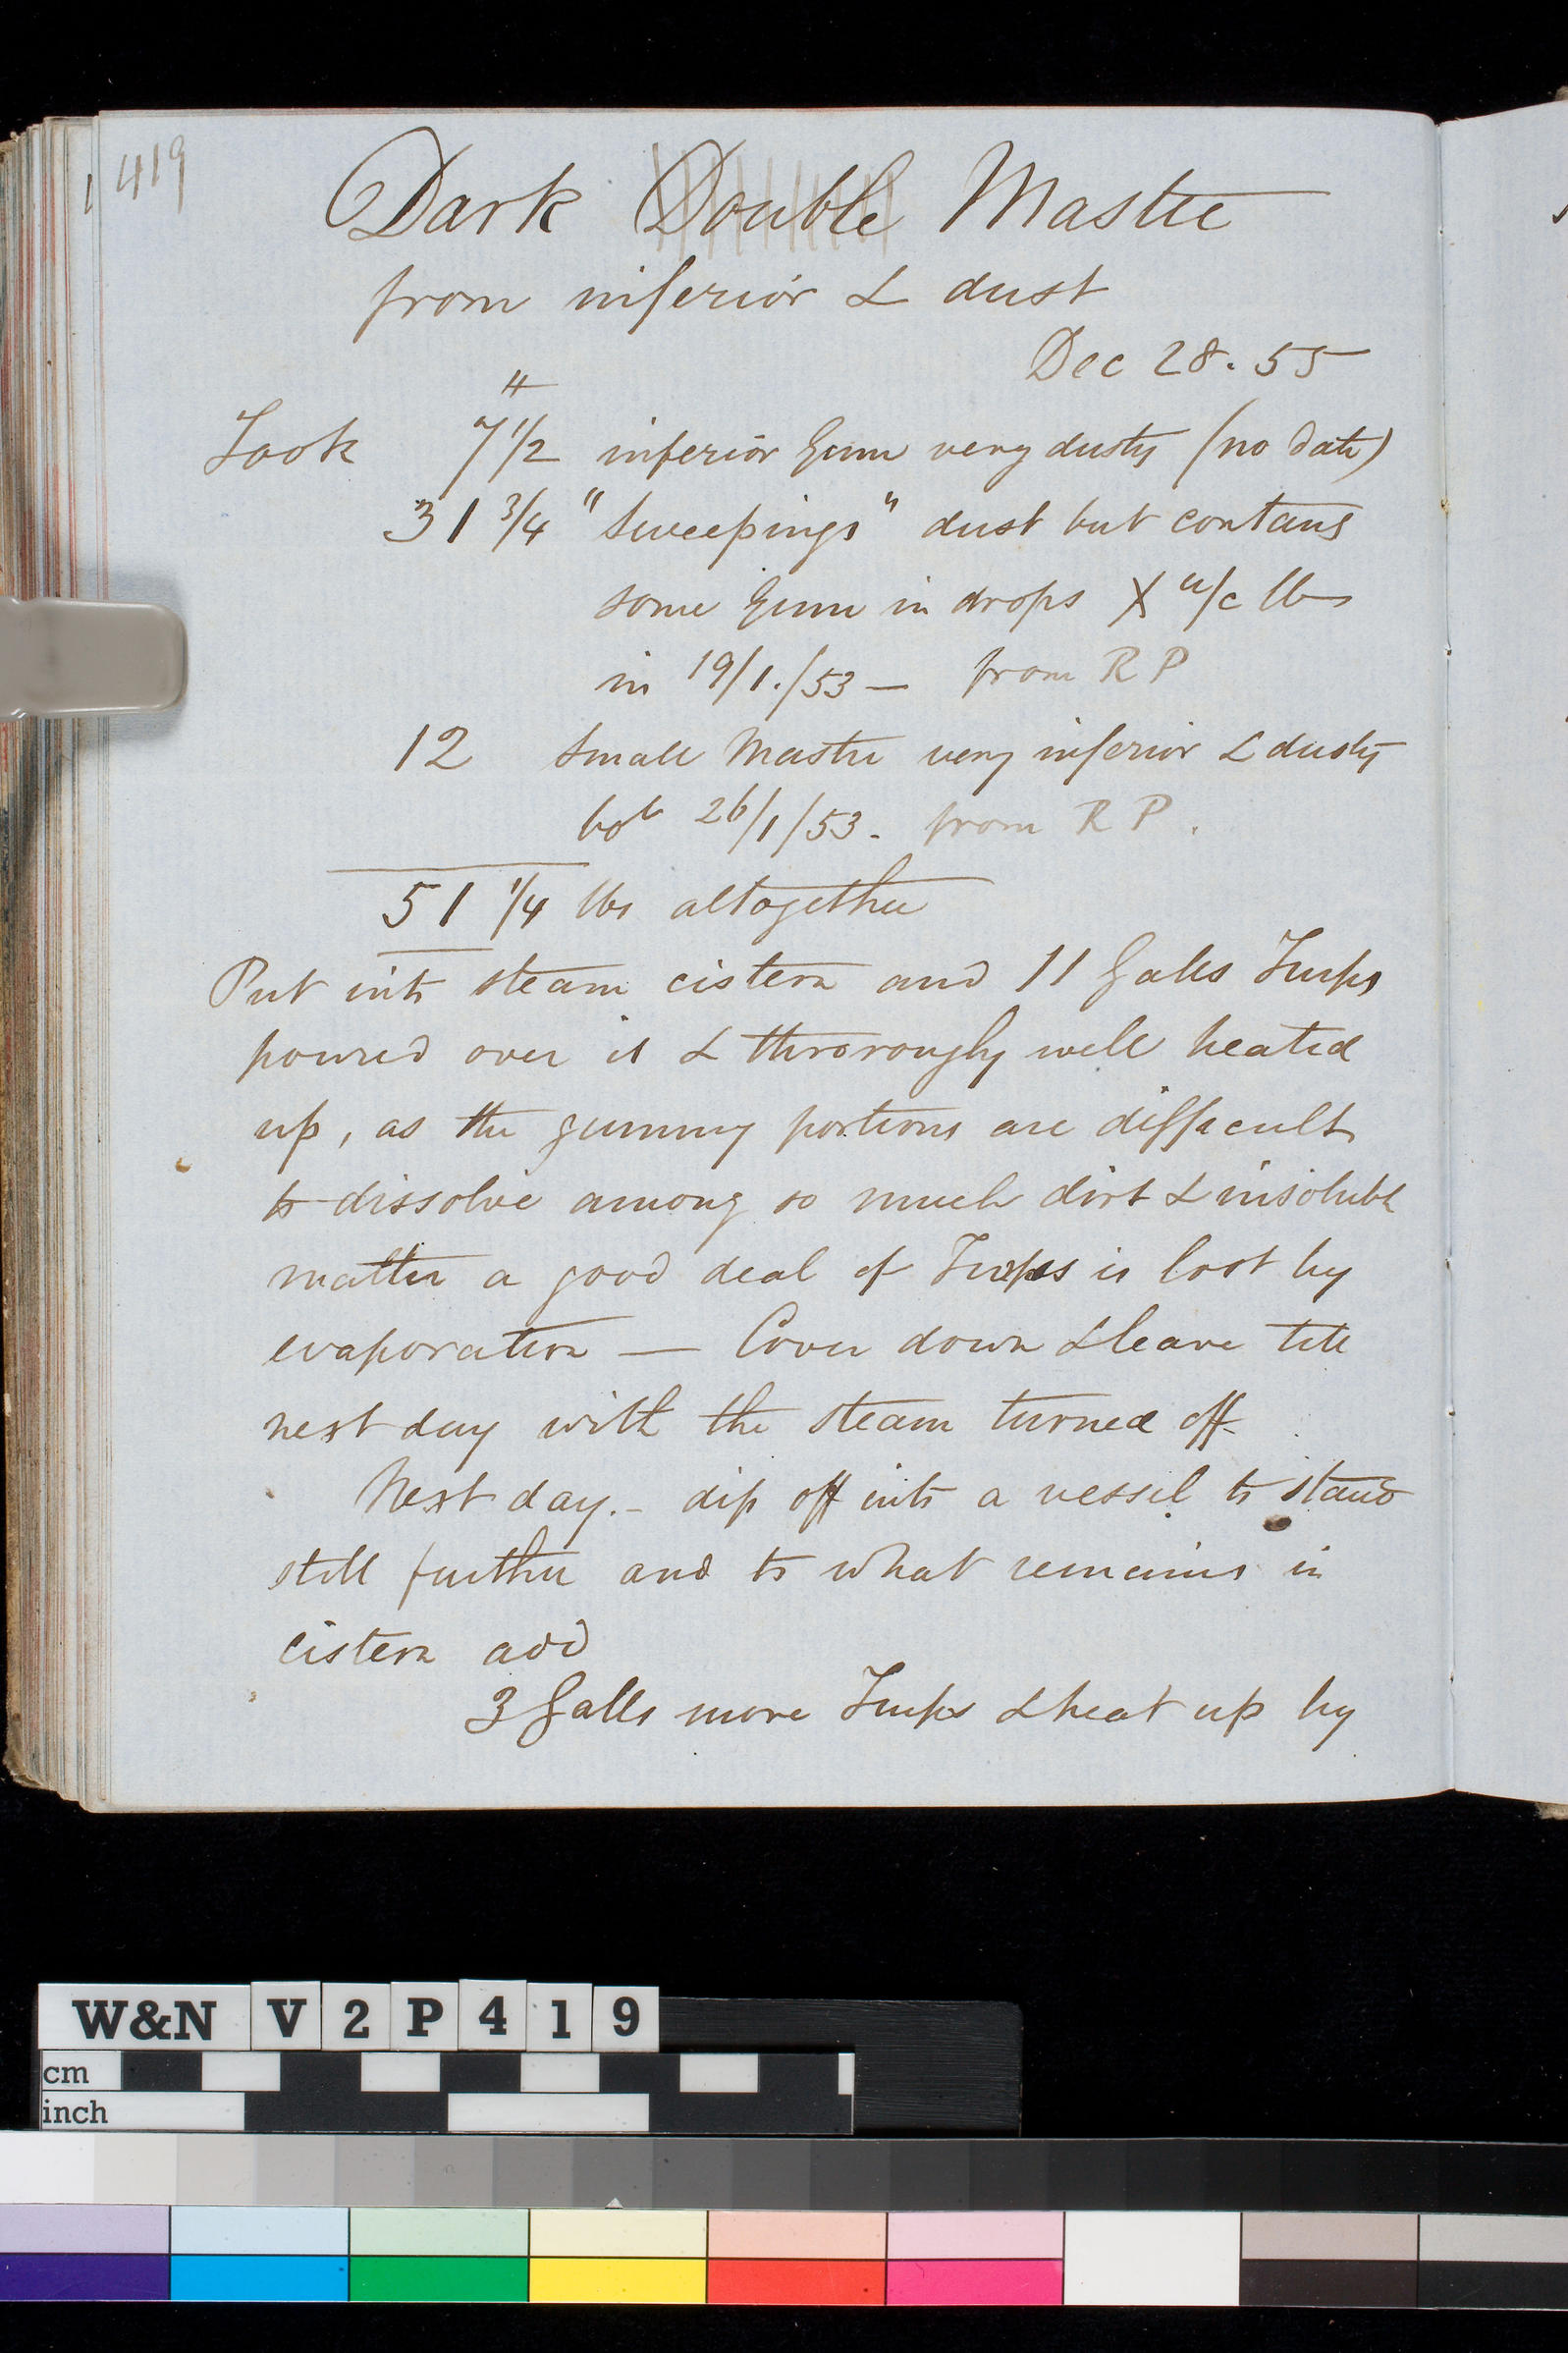 419
Dark Double Mastic
from inferior & dust
Dec 28. 55
Took 7 1/2 inferior Gum very dusty (no date)
31 3/4 "Sweepings" dust but contains
some Gum in drops X u/c lbs
in 19/1./53 — from R P
12 Small Mastic very inferior & dusty
bot 26/1/53. from R P.
51 1/4 lbs altogether
Put into steam cistern and 11 Galls Turps
poured over it & throroughly well heated
up, as the gummy portions are difficult
to dissolve among so much dirt & insoluble
matter a good deal of Turps is lost by
evaporation — Cover down & leave till
next day with the steam turned off
Next day. - dip off into a vessel to stand
still further and to what remains in
cistern add
3 Galls more Turps & heat up by
W&N V2P419
cm
inch